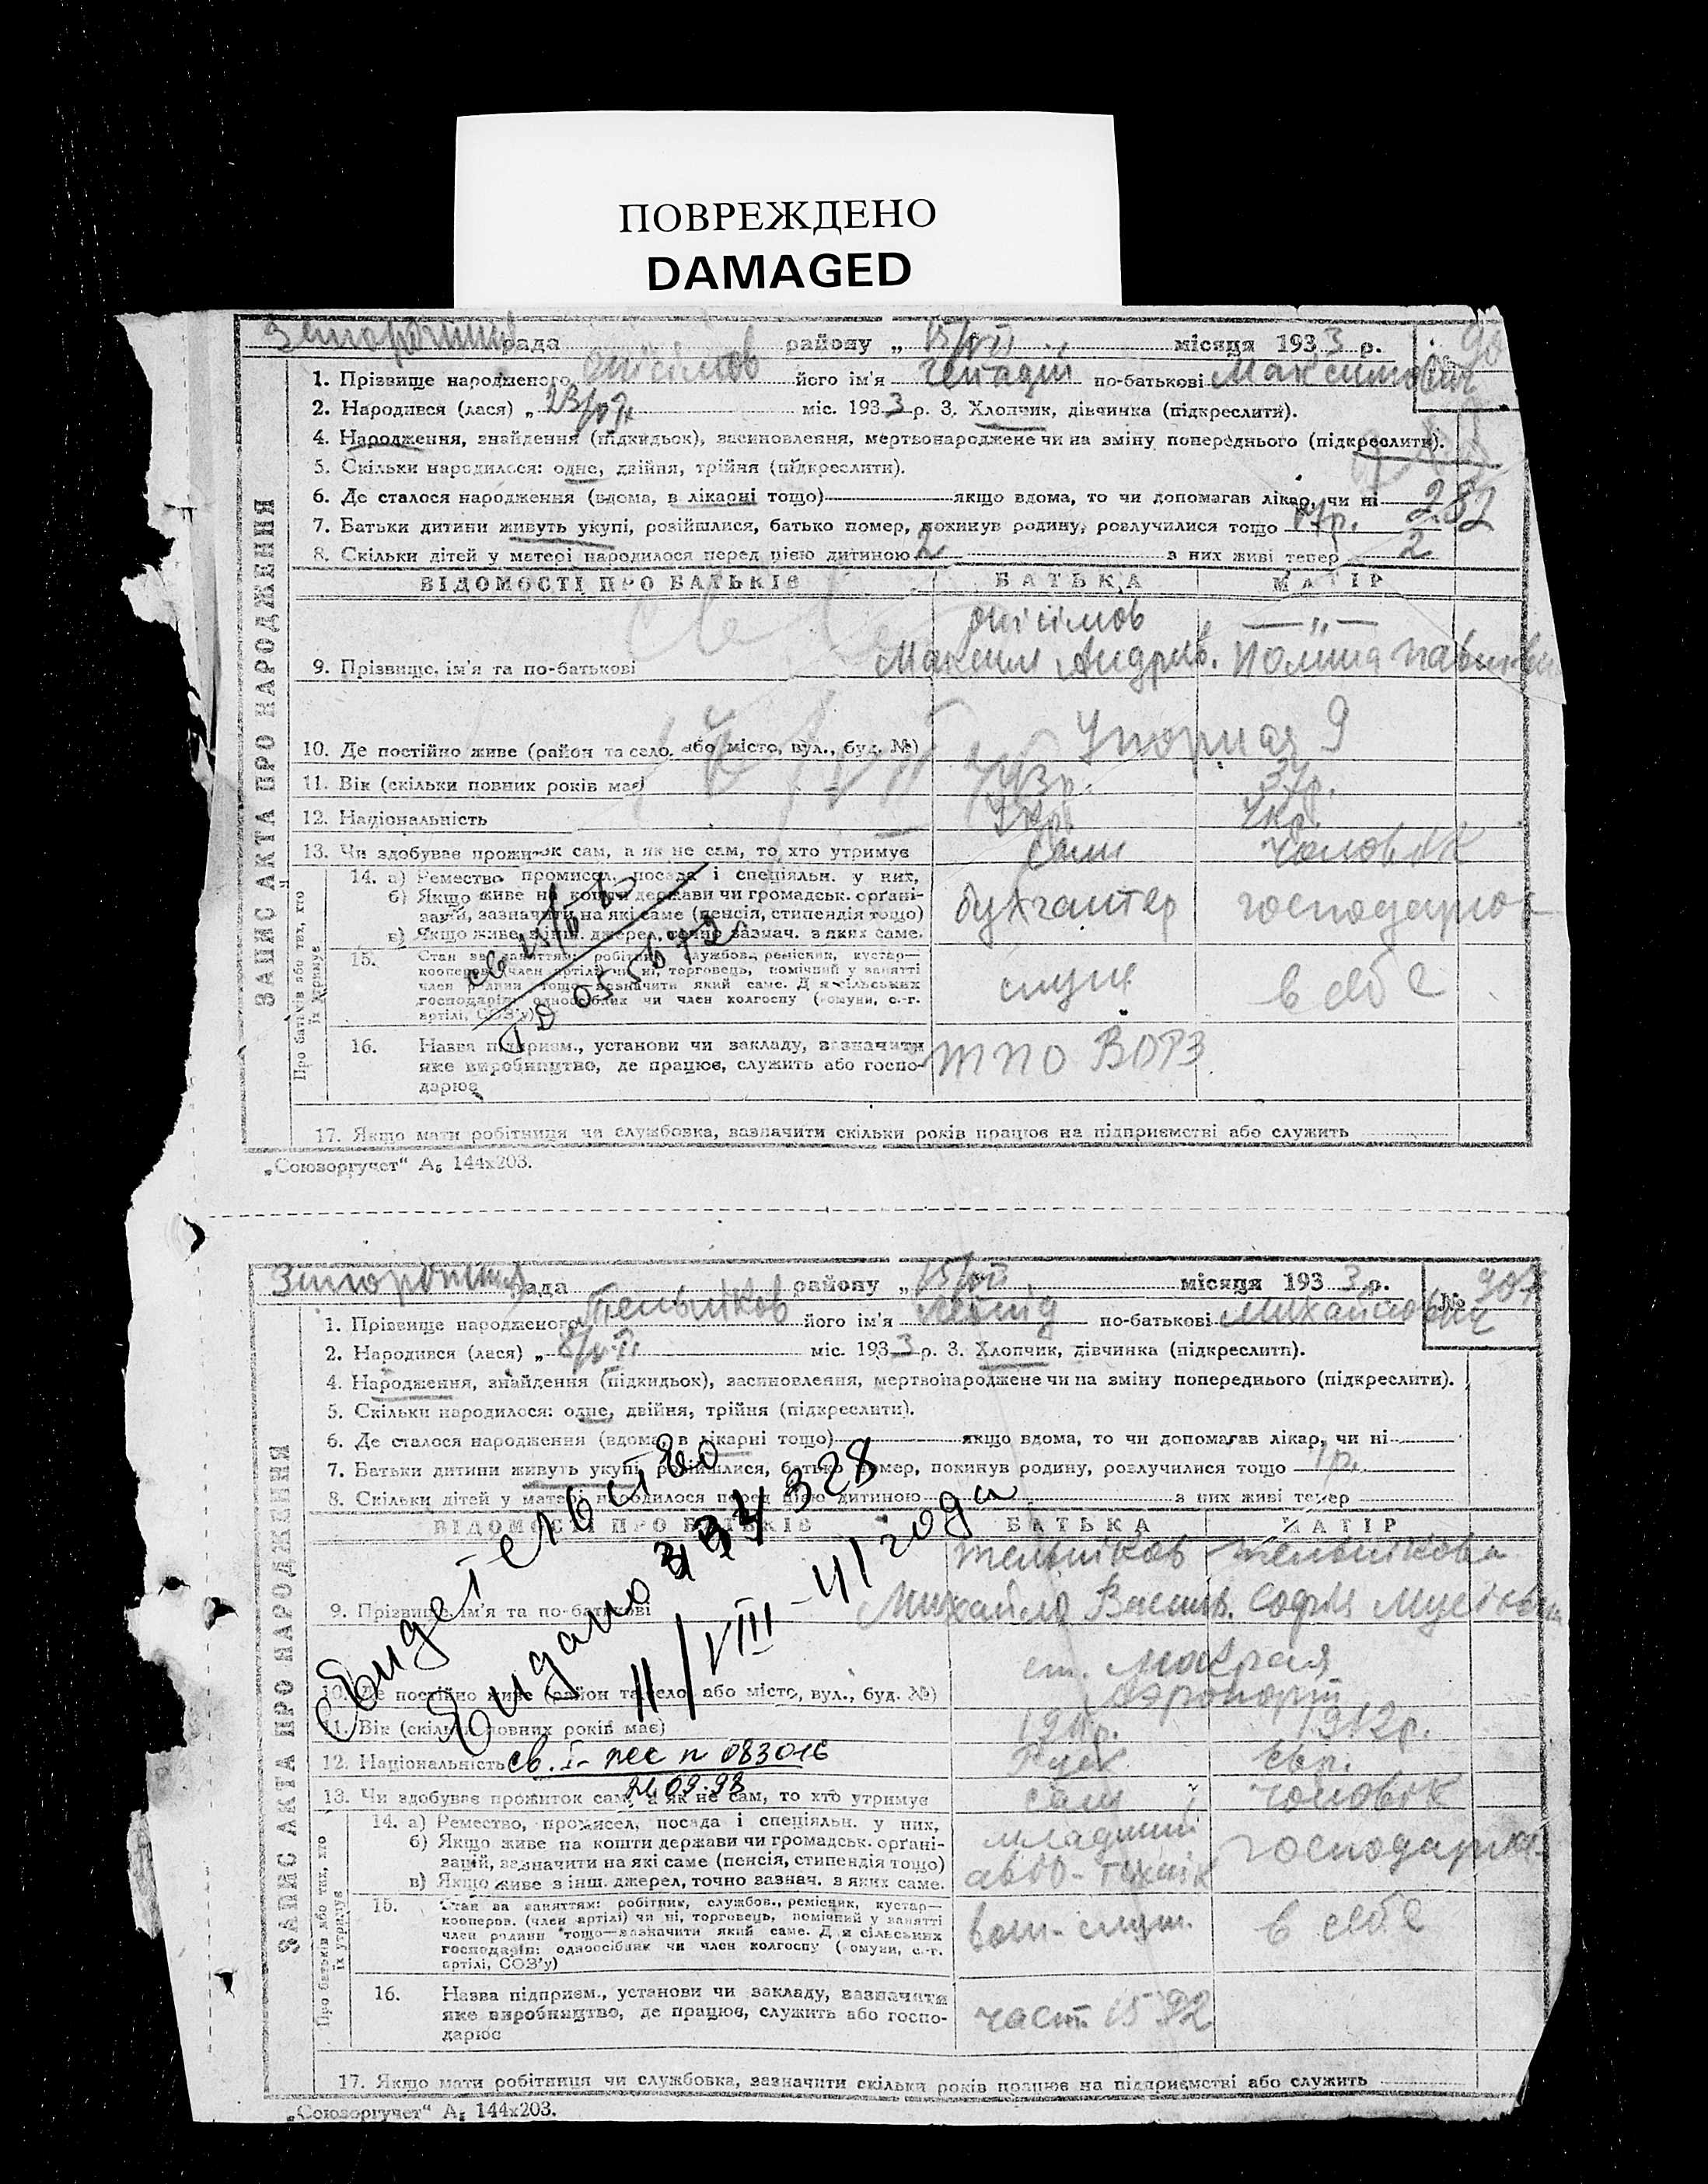 ПОВРЕЖДЕНО
DAMAGED
рада районy „ 15/VII місяця 1933 р.
1. Прізвище народженого Онісімов його ім'я Генадій по-батькові Максимович
2. Народився (лася) „ 23/ міс. 1933 р. 3. Хлопчик, дівчинка (підкреслити).
4. Народження, знайдення (підкидьок), засиновлення, мертвонароджене чи на зміну попереднього (підкреслити).
5. Скільки народилося: одне, двійня, трійня (підкреслити).
6. Де сталося народження (вдома, в лікарні тощо) якщо вдома, то чи допомагав лікар, чи ні
282
7. Батьки дитини живуть укупі, розійшлися, батько помер, покинув родину, розлучилися тощо
8. Скільки дітей у матері народилося перед цією дитиною 2 з них живі тепер 2
ВІДОМОСТІ ПРО БАТЬКІВ БАТЬКА МАТІР
Онісімов — „ —
9. Прізвище, ім'я та по-батькові Максим Андрієв.
10. Де постійно живе (район та село, або місто, вул., буд. №) Упорная 9
11. Вік (скільки повних років має)
12. Національність Укр. Укр.
13. Чи здобуває прожиток сам, а як не сам, то хто утримує сам чоловік
14. а) Ремество, промисел, посада і спеціяльн. у них,
б) Якщо живе на кошти держави чи громадськ. орґані-
зацій, зазначити на які саме (пенсія, стипендія тощо) бухгалтер господарює
в) Якщо живе з інш. джерел, точно зазнач. з яких саме.
15. Стан за заняттям: робітник, службов., ремісник, кустар—
кооперов. (член артілі) чи ні, торговець, помічний у занятті
член родини тощо—зазначити який саме. Для сільських
господарів: одноосібник чи член колгоспу (комуни, с.-г.
артілі, СОЗ'у) служ в себе
16. Назва підприєм., установи чи закладу, зазначити
яке виробництво, де працює, служить або госпо-
дарює ТПО ВОРЗ
17. Якщо мати робітниця чи службовка, зазначити скільки років працює на підприємстві або служить
ЗАПИС АКТА ПРО НАРОДЖЕННЯ
Про батьків або тих, хто
їх утримує
„Союзоргучет“ А₅ 144х203.
рада районy „ 15/VII місяця 1933 р.
№ 907
1. Прізвище народженого Тельніков його ім'я Леонід по-батькові Михайлович
2. Народився (лася) „ 8/VII міс. 1933 р. 3. Хлопчик, дівчинка (підкреслити).
4. Народження, знайдення (підкидьок), засиновлення, мертвонароджене чи на зміну попереднього (підкреслити).
5. Скільки народилося: одне, двійня, трійня (підкреслити).
6. Де сталося народження (вдома, в лікарні тощо) якщо вдома, то чи допомагав лікар, чи ні
7. Батьки дитини живуть укупі, розійшлися, батько помер, покинув родину, розлучилися тощо 1 р.
8. Скільки дітей у матері народилося перед цією дитиною з них живі тепер
ВІДОМОСТІ ПРО БАТЬКІВ БАТЬКА МАТІР
Тельніков Тельнікова
9. Прізвище, ім'я та по-батькові Михайло Васильв. Софія Мусіївна
ст. Мокрая
10. Де постійно живе (район та село, або місто, вул., буд. №) Аэропорт
11. Вік (скільки повних років має) 1911р. 1912р.
12. Національність Руск. Євр.
св. I- рес n 083016
21.09.98
13. Чи здобуває прожиток сам, а як не сам, то хто утримує сам чоловік
14. а) Ремество, промисел, посада і спеціяльн. у них, младший
б) Якщо живе на кошти держави чи громадськ. орґані-
зацій, зазначити на які саме (пенсія, стипендія тощо) господарює
в) Якщо живе з інш. джерел, точно зазнач. з яких саме. авіо-технік
15. Стан за заняттям: робітник, службов., ремісник, кустар—
кооперов. (член артілі) чи ні, торговець, помічний у занятті
член родини тощо—зазначити який саме. Для сільських
господарів: одноосібник чи член колгоспу (комуни, с.-г.
артілі, СОЗ'у) в себе
16. Назва підприєм., установи чи закладу, зазначити
яке виробництво, де працює, служить або госпо-
дарює част. 1592
17. Якщо мати робітниця чи службовка, зазначити скільки років працює на підприємстві або служить
Свидетельство
Видано 328
11/VIII-41 года
ЗАПИС АКТА ПРО НАРОДЖЕННЯ
Про батьків або тих, хто
їх утримує
„Союзоргучет“ А₅ 144х203.